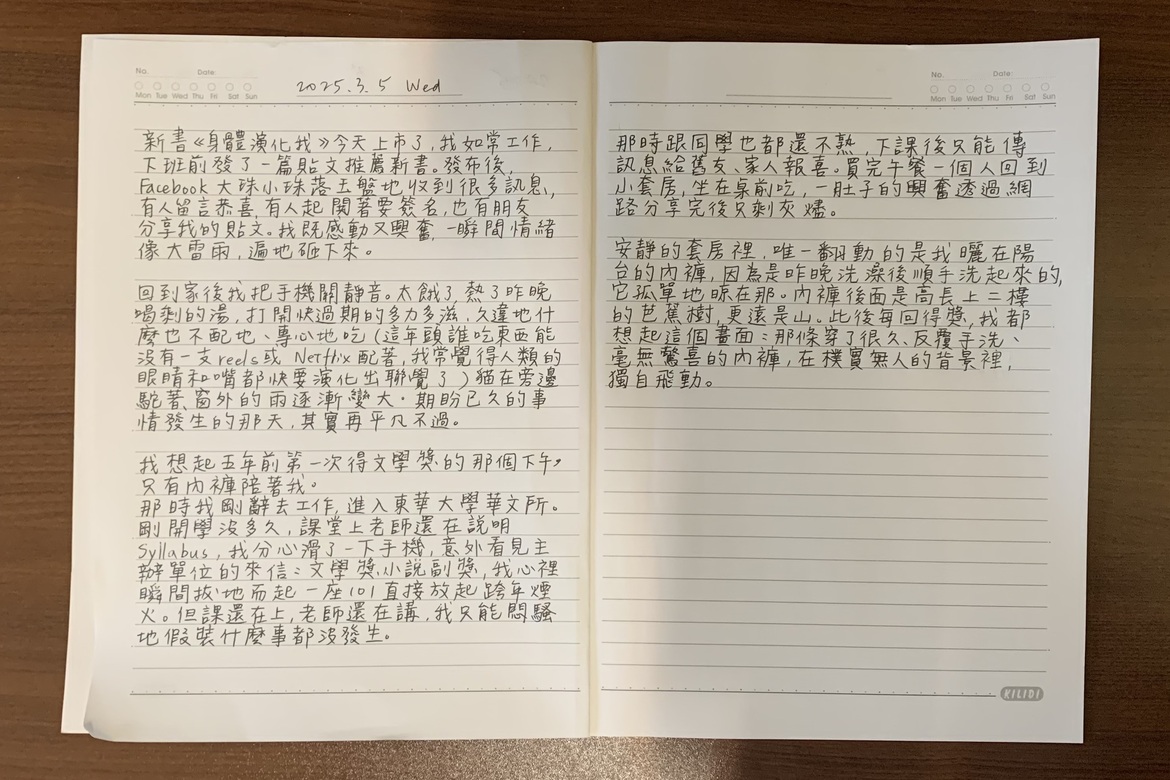 No. Date:
Mon Tue Wed Thu Fri Sat Sun
2025.3.5 Wed
新書《身體演化我》今天上市了,我如常工作,
下班前發了一篇貼文推薦新書。發布後,
Facebook 大珠小珠落玉盤地收到很多訊息,
有人留言恭喜,有人起鬨著要簽名,也有朋友
分享我的貼文。我既感動又興奮,瞬間情緒
像大雷雨,遍地砸下來。
回到家後我把手機關靜音。太餓了,熱了昨晚
喝剩的湯,打開快過期的多力多滋,久違地什
麼也不配地、專心地吃(這年頭誰吃東西能
沒有一支reels或 Netflix 配著,我常覺得人類的
眼睛和嘴都快要演化出聯覺了)貓在旁邊
駝著,窗外的雨逐漸變大。期盼已久的事
情發生的那天,其實再平凡不過。
我想起五年前第一次得文學獎的那個下午,
只有內褲陪著我。
那時我剛辭去工作,進入東華大學華文所。
剛開學沒多久,課堂上老師還在說明
Syllabus,我分心滑了一下手機,意外看見主
辦單位的來信:文學獎小說副獎,我心裡
瞬間拔地而起一座101直接放起跨年煙
火。但課還在上,老師還在講,我只能悶騷
地假裝什麼事都沒發生。
No. Date:
Mon Tue Wed Thu Fri Sat Sun
那時跟同學也都還不熟,下課後只能傳
訊息給舊友、家人報喜。買完午餐一個人回到
小套房,坐在桌前吃,一肚子的興奮透過網
路分享完後只剩灰燼。
安靜的套房裡,唯一翻動的是我曬在陽
台的內褲,因為是昨晚洗澡後順手洗起來的,
它孤單地晾在那。內褲後面是高長上二樓
的芭蕉樹,更遠是山。此後每回得獎,我都
想起這個畫面:那條穿了很久、反覆手洗、
毫無驚喜的內褲,在樸實無人的背景裡,
獨自飛動。
KILIDI